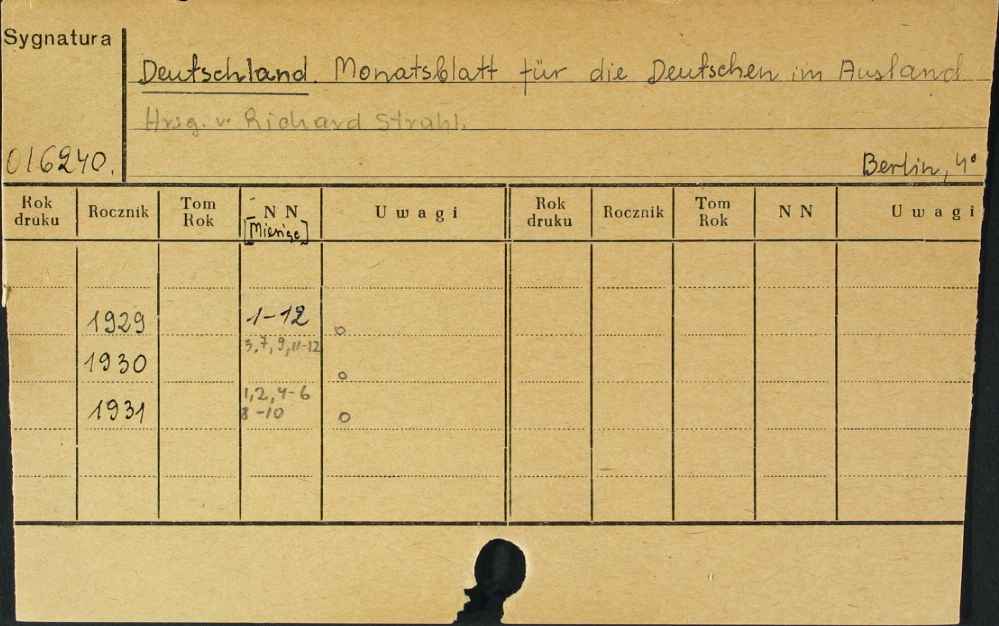 Sygnatura
Deutschland. Monatsblatt für die Deutschen im Ausland
Hrsg. v. Richard Strahl.
016240.
Berlin, 4°
Rok druku Rocznik Tom Rok N N Uwagi Rok druku Rocznik Tom Rok N N Uwagi
1929 1-12 o
3, 7, 9, 11-12
1930 o
1, 2, 4-6
1931 8-10 o